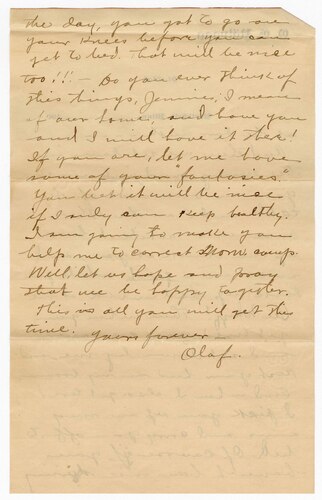 the day, you got to go on
your knees before you can
get to bed. That will be nice
too!!! — Do you ever think of
this things, Jennie, I mean
of our home, and how you
and I will have it there!
If you are, "let me have
some of your fantasies"
You bet it will be nice
if I only can keep healthy.
I am going to make you
help me to correct
Well, let us hope and pray
that we be happy together.
This is all you will get this
time. Yours forever —
Olaf.